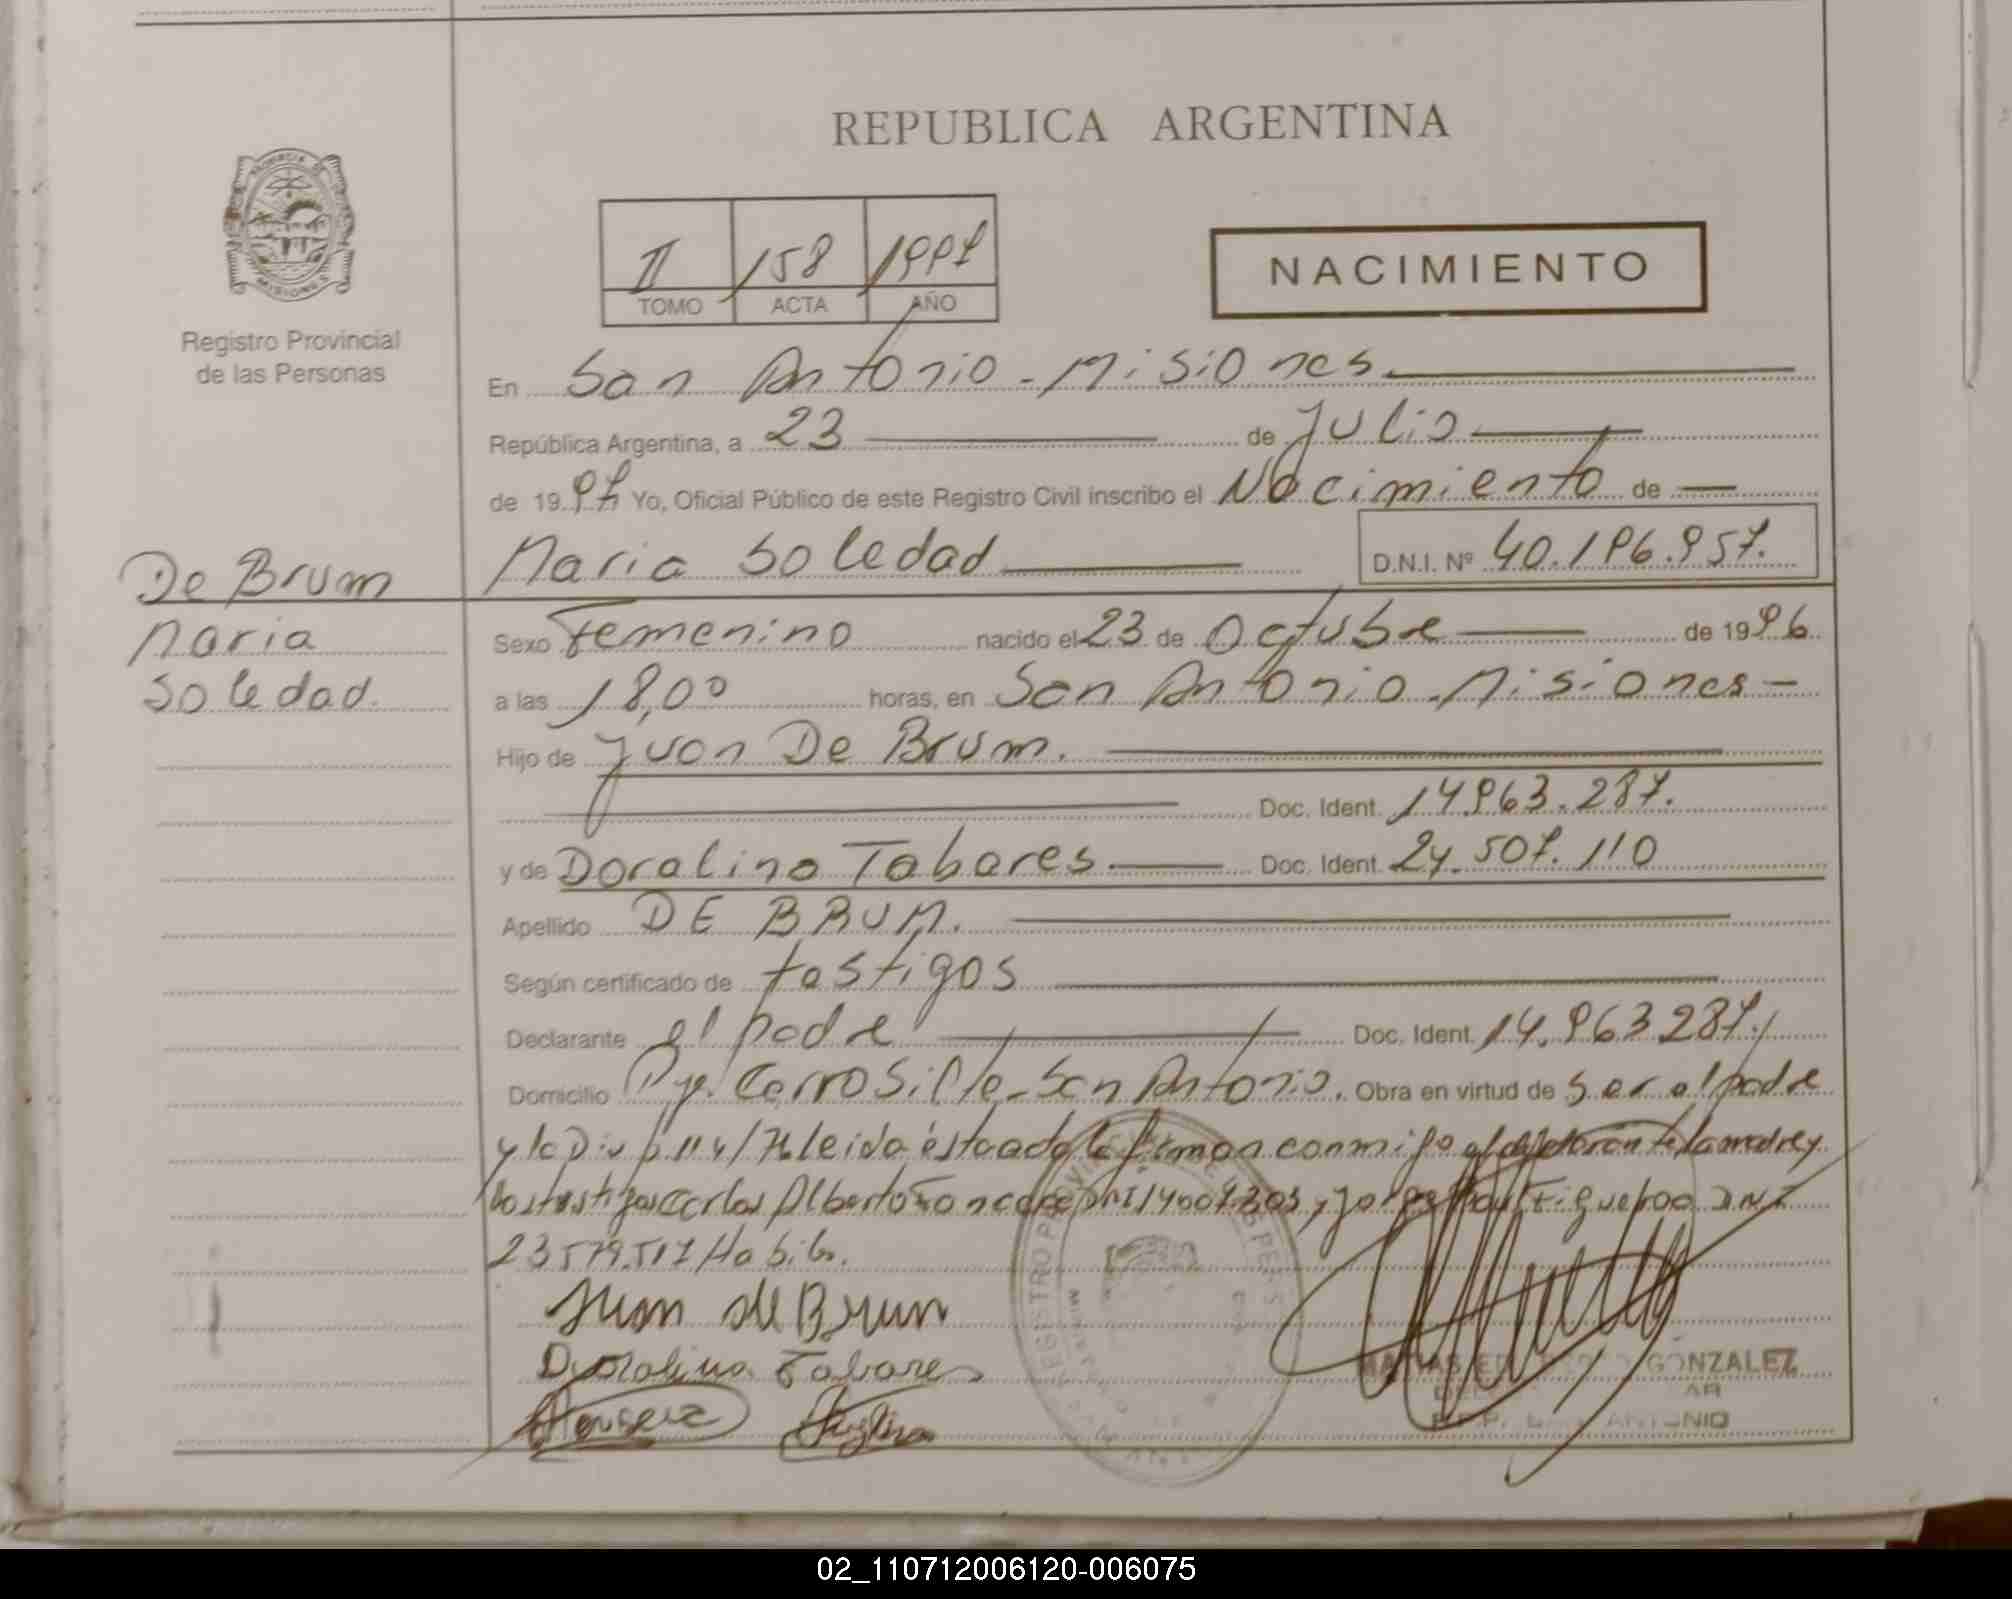 REPUBLICA ARGENTINA
PROVINCIA DE
MISIONES
Registro Provincial
de las Personas
II 158 1997
TOMO ACTA AÑO
NACIMIENTO
En San Antonio - Misiones
República Argentina, a 23 de Julio
de 1997 Yo, Oficial Público de este Registro Civil inscribo el Nacimiento de
Maria Soledad D.N.I. Nº 40.196.957.
De Brum
Maria
Soledad.
Sexo Femenino nacido el 23 de Octubre de 1996
a las 18,00 horas, en San Antonio - Misiones -
Hijo de Juan De Brum.
Doc. Ident. 14.963.287.
y de Doralina Tabares Doc. Ident. 24.507.110
Apellido DE BRUM.
Según certificado de testigos
Declarante el padre Doc. Ident. 14.963287.
Domicilio Pje. Cerro Sil/e - San Antonio. Obra en virtud de ser el padre
y la leida esta acta la firman conmigo el declarante la madre y
los testigos Carlos Alberto DNI 14007303, y Jorge Raul DNI
23579.517 Habil.
Juan de Brun
Doralina Tabares
GONZALEZ
R.P.P. SAN ANTONIO
02_110712006120-006075